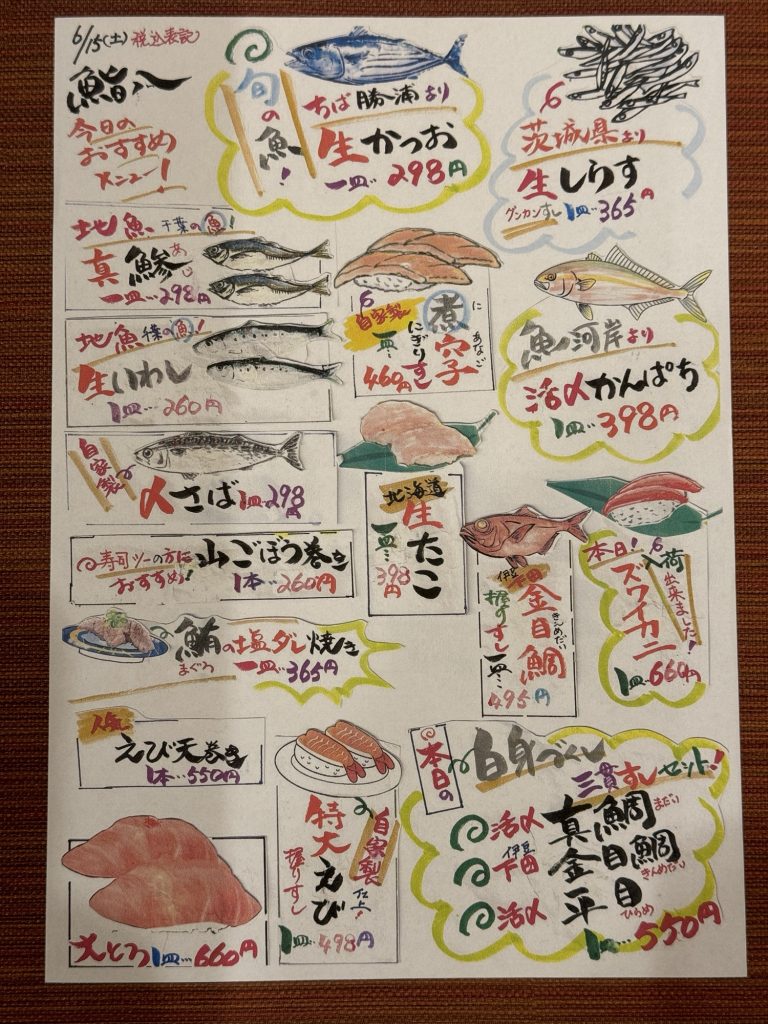 6/15(土) 税込表記
鮨八
今日の
おすすめ
メニュー!
旬の魚!
ちば勝浦より
生かつお
一皿…298円
茨城県より
生しらす
グンカンすし 1皿…365円
地魚 千葉の魚!
真鯵
あじ
一皿…298円
地魚 千葉の魚!
生いわし
1皿…260円
自家製
〆さば 1皿…298円
寿司ツーの方に
おすすめ!
山ごぼう巻き
1本…260円
自家製
煮穴子
に あなご
にぎりすし
一皿…460円
魚河岸より
活〆かんぱち
1皿…398円
北海道
生たこ
一皿…398円
伊豆下田
金目鯛
きんめだい
握りすし
一皿…495円
本日!
入荷出来ました!
ズワイカニ
1皿…660円
鮪の塩ダレ焼き
まぐろ
一皿…365円
人気
えび天巻き
1本…550円
自家製仕上!
特大えび
握りすし
1皿…498円
大とろ 1皿…660円
本日の
白身づくし
三貫すしセット!
活〆 真鯛 まだい
伊豆下田 金目鯛 きんめだい
活〆 平目 ひらめ
1皿…550円